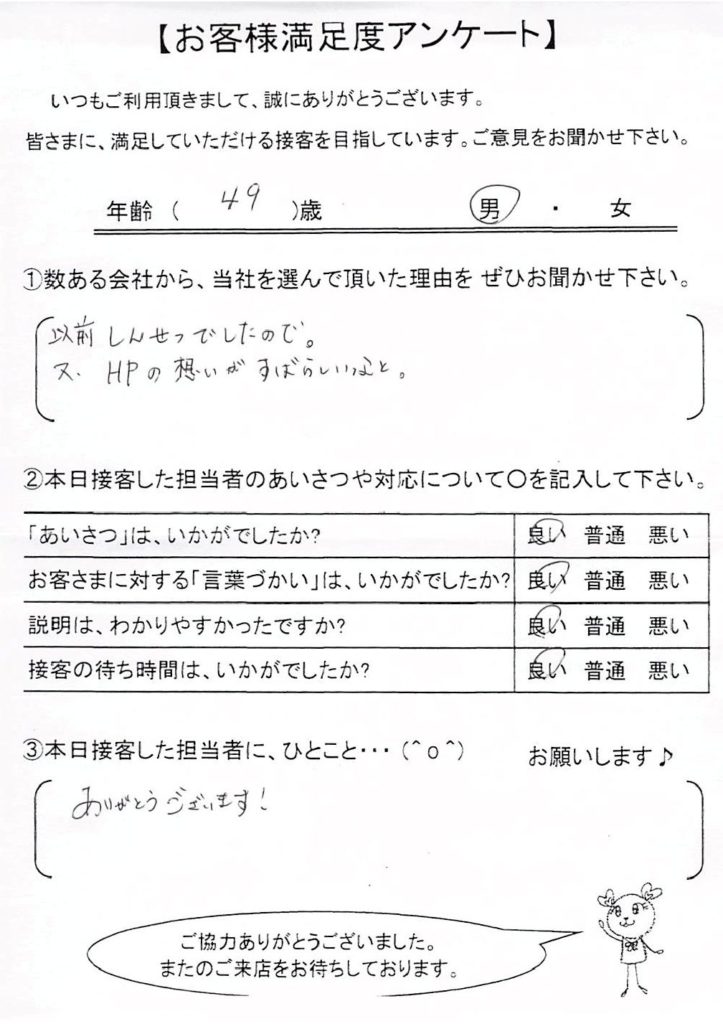 【お客様満足度アンケート】
いつもご利用頂きまして、誠にありがとうございます。
皆さまに、満足していただける接客を目指しています。ご意見をお聞かせ下さい。
年齢 ( 49 )歳 男 ・ 女
①数ある会社から、当社を選んで頂いた理由を ぜひお聞かせ下さい。
以前 しんせつでしたので。
又、HPの想いがすばらしいこと。
②本日接客した担当者のあいさつや対応について〇を記入して下さい。
「あいさつ」は、いかがでしたか? 良い 普通 悪い
お客さまに対する「言葉づかい」は、いかがでしたか? 良い 普通 悪い
説明は、わかりやすかったですか? 良い 普通 悪い
接客の待ち時間は、いかがでしたか? 良い 普通 悪い
③本日接客した担当者に、ひとこと・・・ (^o^) お願いします♪
ありがとうございます!
ご協力ありがとうございました。
またのご来店をお待ちしております。